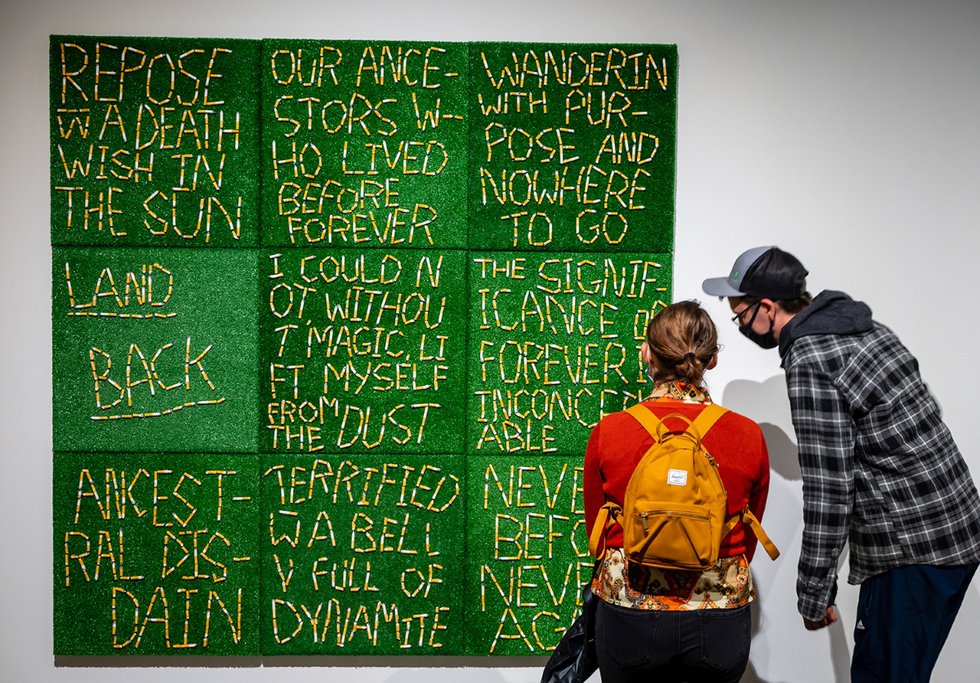 REPOSE
W̅ A DEATH
WISH IN
THE SUN
OUR ANCE-
STORS W-
HO LIVED
BEFORE
FOREVER
WANDERIN
WITH PUR-
POSE AND
NOWHERE
TO GO
LAND
BACK
I COULD N
OT WITHOU
T MAGIC, LI
FT MYSELF
FROM
THE DUST
THE SIGNIF-
ICANCE
FOREVER
INCONCE
ABLE
ANCEST-
RAL DIS-
DAIN
TERRIFIED
W̅ A BELL
Y FULL OF
DYNAMITE
NEVE
BEFO
NEVE
AG